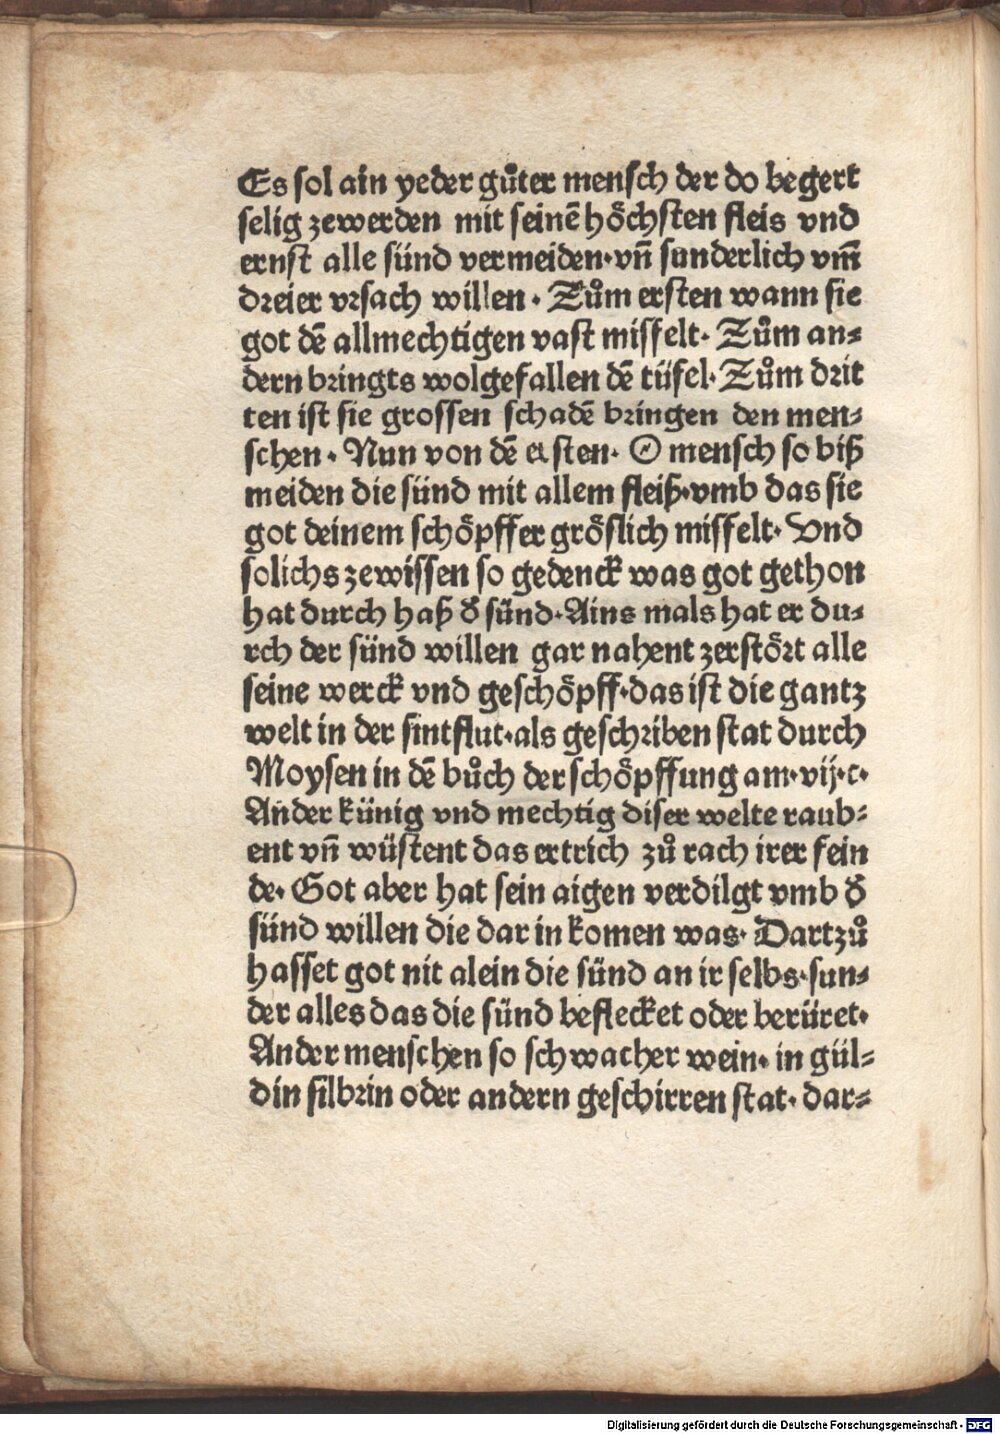 Es sol ain yeder gůter mensch der do begert
selig zewerden mit seinē hoͤchsten fleis vnd
ernst alle sünd vermeiden·vn̄ sunderlich vm̄
dreier vrsach willen · Zům ersten wann sie
got dē allmechtigen vast misfelt· Zům an⸗
dern bringts wolgefallen dē tüfel· Zům drit
ten ist sie grossen schadē bringen den men⸗
schen · Nun von dē ersten· O mensch so biß
meiden die sünd mit allem fleiß·vmb das sie
got deinem schoͤpffer groͤslich misfelt· Vnd
solichs zewissen so gedenck was got gethon
hat durch haß d̄ sünd·Ains mals hat er du⸗
rch der sünd willen gar nahent zerstoͤrt alle
seine werck vnd geschoͤpff·das ist die gantz
welt in der sintflut·als geschriben stat durch
Moysen in dē bůch der schoͤpffung am·vij·c·
Ander künig vnd mechtig diser welte raub⸗
ent vn̄ wüstent das ertrich zů rach irer fein
de· Got aber hat sein aigen verdilgt vmb d̄
sünd willen die dar in komen was· Dartzů
hasset got nit alein die sünd an ir selbs·sun⸗
der alles das die sünd beflecket oder berüret·
Ander menschen so schwacher wein· in gül⸗
din silbrin oder andern geschirren stat· dar⸗
Digitalisierung gefördert durch die Deutsche Forschungsgemeinschaft - DFG